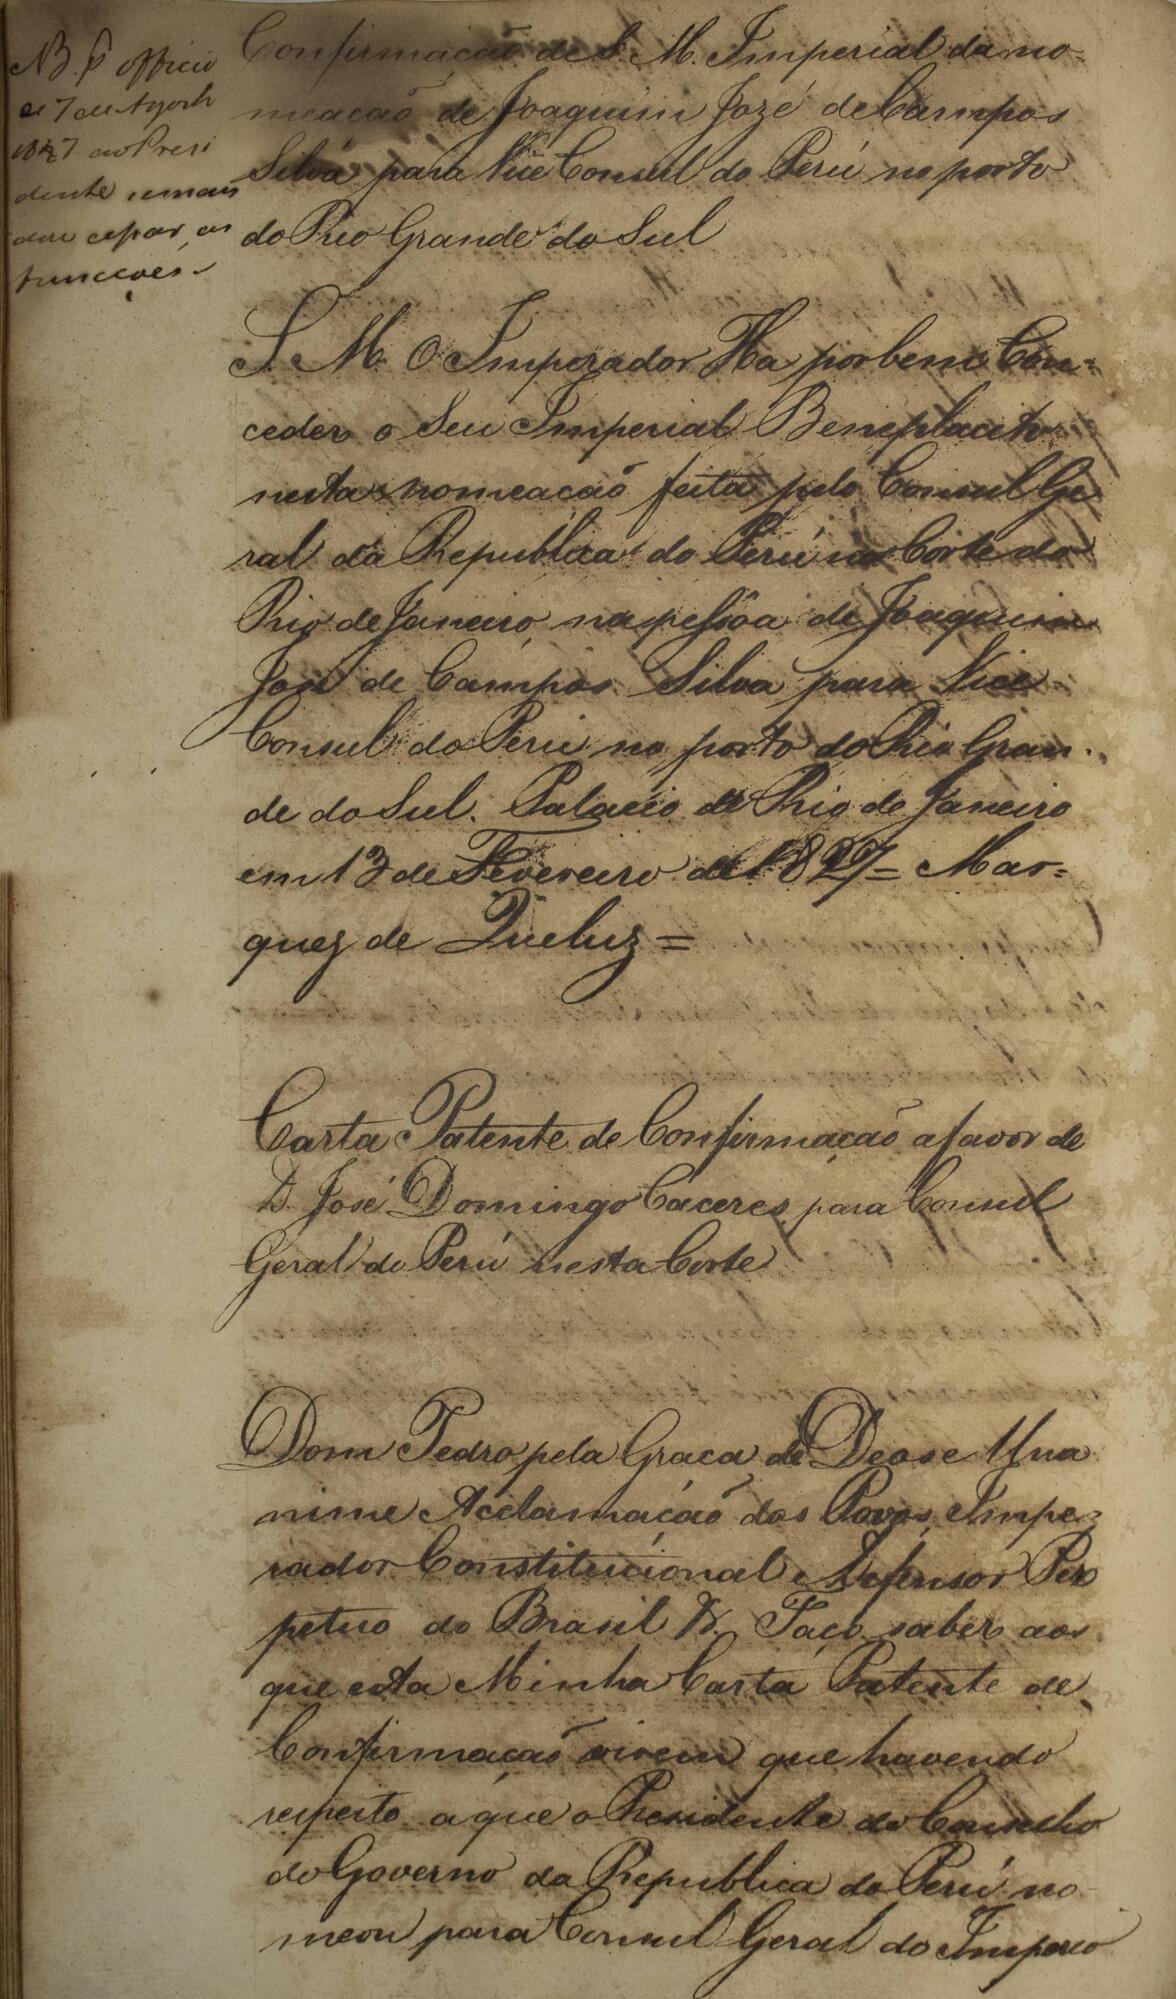 NB. P officio
de 7 de Agosto
1827 ao Presi
dente
cessar as
funccoés.
Confirmação de S. M. Imperial da no-
meacaõ de Joaquim Jozé de Campos
Silva para Vice Consul do Perú no porto
do Rio Grande do Sul
S. M. O Imperador Ha por bem Con-
ceder o Seu Imperial Beneplacito
nesta nomeacaõ feita pelo Consul Ge
ral da Republica do Perú na Corte do
Rio de Janeiro na pessôa de Joaquim
José de Campos Silva para Vice
Consul do Perú no porto do Rio Gran-
de do Sul. Palacio do Rio de Janeiro
em 13 de Fevereiro de 1827 = Mar=
quez de Queluz =
Carta Patente de Confirmaçaõ a favor de
D. José Domingo Caceres para Consul
Geral do Perú nesta Corte
Dom Pedro pela Graca de Deos e Una
nime Acclamaçaõ dos Povos, Impe
rador Constitucional e Defensor Per
petuo do Brasil &. Faço saber aos
que esta Minha Carta Patente de
Confirmaçaõ virem que havendo
respeito a que o Presidente do Conselho
do Governo da Republica do Perú no-
meou para Consul Geral do Imperio